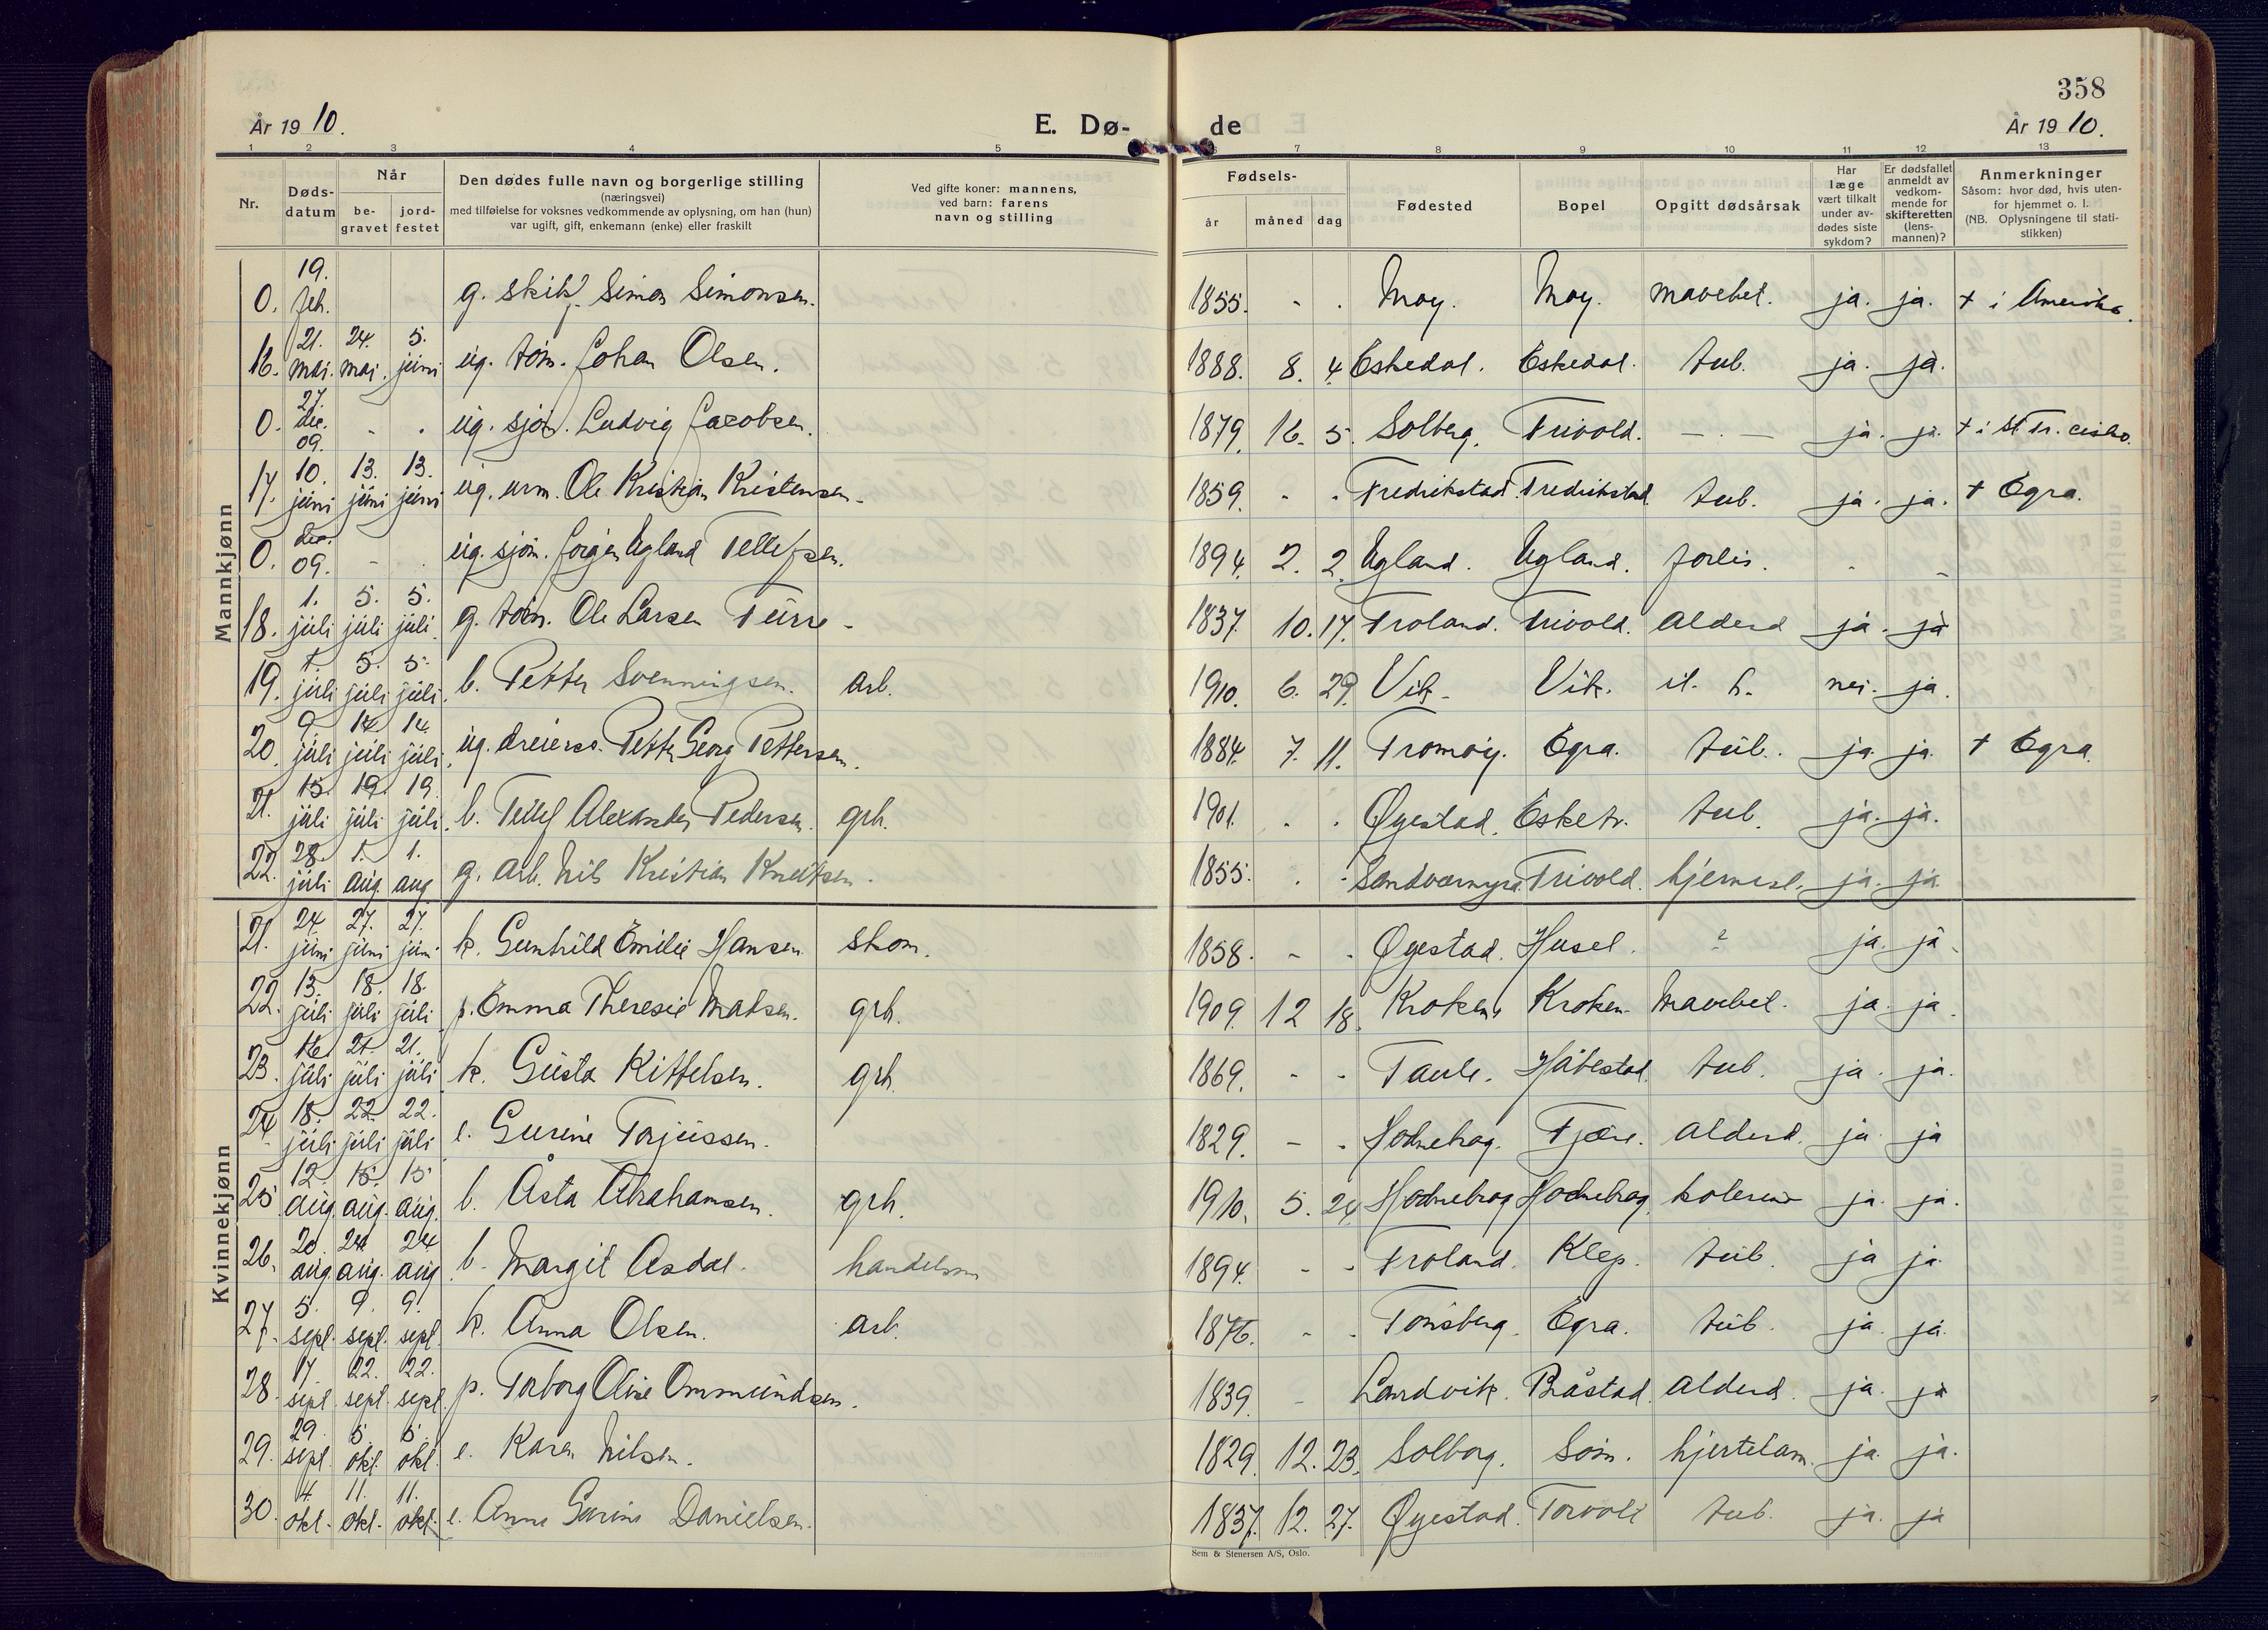 358
År 19 10. E. Dø- de År 19 10.
1 2 3 4 5 6 7 8 9 10 11 12 13
Nr. Døds-datum Når be-gravet jord-festet Den dødes fulle navn og borgerlige stilling (næringsvei) med tilføielse for voksnes vedkommende av oplysning, om han (hun) var ugift, gift, enkemann (enke) eller fraskilt Ved gifte koner: mannens, ved barn: farens navn og stilling Fødsels- år måned dag Fødested Bopel Opgitt dødsårsak Har læge vært tilkalt under av-dødes siste sykdom? Er dødsfallet anmeldt av vedkom-mende for skifteretten (lens-mannen)? Anmerkninger Såsom: hvor død, hvis uten-for hjemmet o. l. (NB. Oplysningene til stati-stikken)
Mannkjønn
0. 19. feb. g. skibf. Simon Simonsen. 1855. - . Moy. Moy. mavebet. ja. ja. + i Amerika.
16. 21. mai. 24. mai. 5. juni ug. tøm. Johan Olsen. 1888. 8. 4. Eskedal. Eskedal. tub. ja. ja.
0. 27. dec. 09. - . ug. sjøm. Ludvig Jacobsen. 1879. 16. 5. Solberg. Trivold. — . — ja. ja. + i St. Fr. cisko.
17. 10. juni 13. juni 13. juni ug. urm. Ole Kristian Kristensen. 1859. - . Fredrikstad. Fredrikstad. tub. ja. ja. + Egra.
0. dec. 09. - . ug. sjøm. Jørgen Ugland Tellefsen. 1894. 2. 2. Ugland. Ugland. forlis. - -
18. 1. juli 5. juli 5. juli g. tøm. Ole Larsen 1837. 10. 17. Froland. Trivold. alderd ja. ja
19. 1. juli 5. juli 5. juli. b. Petter Svenningsen. arb. 1910. 6. 29. Vik. Vik. nei. ja.
20. 9. juli 14. juli 14. juli. ug. dreiersv. Petter Georg Pettersen. 1884. 7. 11. Tromøy. Egra. tub. ja. ja. + Egra.
21. 15. juli 19. juli 19. juli. b. Tellef Alexander Pedersen. grb. 1901. . . Øyestad. Esketv. tub. ja. ja.
22. 28. juli 1. aug. 1. aug. g. arb. Nils Kristian Knutsen. 1855. . . Trivold. ja. ja.
Kvinnekjønn
21. 24. juni 27. juni 27. juni k. Gunhild Emilie Hansen. skom. 1858. - . Øyestad. ? ja. ja.
22. 13. juli 18. juli 18. juli p. Emma Theresie Matsen. grb. 1909. 12 18. Kroken. Kroken. Mavebet. ja. ja.
23. 16. juli 21. juli 21. juli k. Gusta Kittelsen. grb. 1869. - - Håbestad. tub. ja. ja.
24 18. juli 22. juli 22. juli e. Gurine Torjussen. 1829. - - Hodnebrog. Fjære. alderd. ja. ja
25 12. aug. 15. aug. 15 aug. b. Åsta Abrahamsen. grb. 1910. 5. 24 Hodnebrog Hodnebrog. kolerine ja. ja.
26. 20. aug. 24. aug. 24 aug. b. Margit Asdal. handelsm 1894. - - Froland. Klep. tub. ja ja.
27. 5. sept. 9. sept. 9. sept. k. Anna Olsen. arb. 1876. - . Tønsberg. Egra. tub. ja. ja.
28. 17. sept. 22. sept. 22. sept. p. Torborg Oline Ommundsen. 1839. - Landvik. Bråstad. alderd. ja. ja
29. 29. sept. 5. okt. 5. okt. e. Karen Nilsen. 1829. 12. 23. Solborg. Søm. hjertelam. ja. ja.
30. 4. okt. 11. okt. 11. okt. e. Anne Gurine Danielsen. 1837. 12. 27. Øyestad. Torvolt tub. ja. ja
Sem & Stenersen A/S, Oslo.